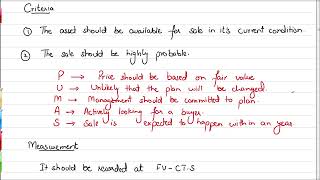 Criteria
① The asset should be available for sale in it's current condition
② The sale should be highly probable.
P → Price should be based on fair value
U → Unlikely that the plan will be changed.
M → Management should be committed to plan.
A → Actively looking for a buyer.
S → Sale is expected to happen within an year
Measurement
It should be recorded at FV-CTS